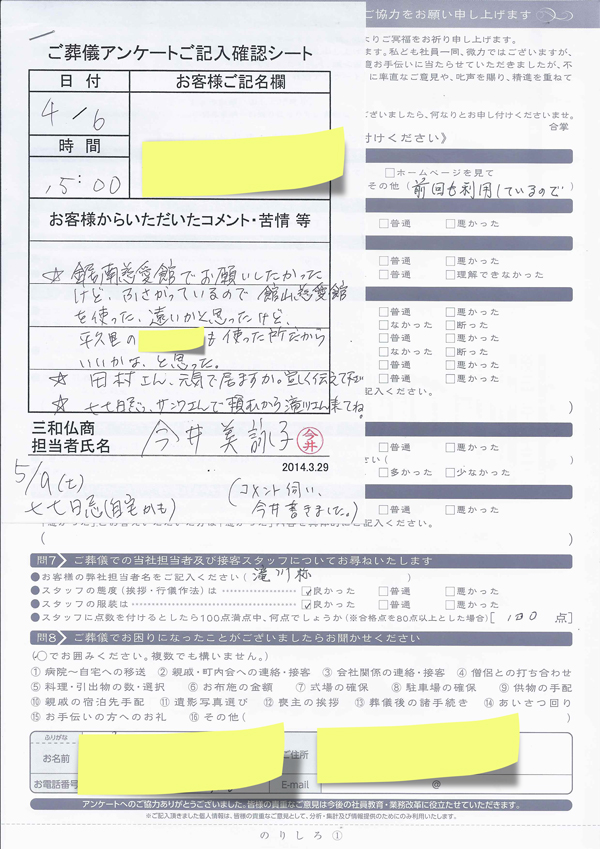 ご協力をお願い申し上げます
ご葬儀アンケートご記入確認シート
日付
お客様ご記名欄
4/6
時間
15:00
お客様からいただいたコメント・苦情 等
☆ 鋸南慈愛館でお願いしたかった
けど、ふさがっているので 館山慈愛館
を使った、遠いかと思ったけど、
平久里の
も使った所だから
いいかな、と思った。
☆ 田村さん、元気で居ますか。宜しく伝えて下さい
☆ 七七日忌、サンワさんで頼むから滝川さん来てね。
三和仏商
担当者氏名
今井美詠子
今井
2014.3.29
5/9(土)
七七日忌(自宅かも)
(コメント伺い、
今井書きました。)
よりご冥福をお祈り申し上げます。
ます。私ども社員一同、微力ではございますが、
お手伝いに当たらせていただきましたが、不
に率直なご意見や、叱声を賜り、精進を重ねて
ございましたら、何なりとお申し付けくださいませ。
合掌
付けください》
□ホームページを見て
その他(前回も利用しているので
□普通 □悪かった
□普通 □悪かった
□普通 □理解できなかった
□普通 □悪かった
□なかった □断った
□普通 □悪かった
□なかった □断った
□普通 □悪かった
□普通 □悪かった
記入ください。
)
□普通 □悪かった
さい( )
□多かった □少なかった
□普通 □悪かった
ご記入ください。
( )
問7 ご葬儀での当社担当者及び接客スタッフについてお尋ねいたします
●お客様の弊社担当者名をご記入ください( 滝川 称 )
●スタッフの態度(挨拶・行儀作法)は ☑良かった □普通 □悪かった
●スタッフの服装は ☑良かった □普通 □悪かった
●スタッフに点数を付けるとしたら100点満点中、何点でしょうか(※合格点を80点以上とした場合)[ 100 点]
問8 ご葬儀でお困りになったことがございましたらお聞かせください
(○でお囲みください。複数でも構いません。)
①病院~自宅への移送 ②親戚・町内会への連絡・接客 ③会社関係の連絡・接客 ④僧侶との打ち合わせ
⑤料理・引出物の数・選択 ⑥お布施の金額 ⑦式場の確保 ⑧駐車場の確保 ⑨供物の手配
⑩親戚の宿泊先手配 ⑪遺影写真選び ⑫喪主の挨拶 ⑬葬儀後の諸手続き ⑭あいさつ回り
⑮お手伝いの方へのお礼 ⑯その他( )
ふりがな
お名前
ご住所
お電話番号
E-mail @
アンケートへのご協力ありがとうございました。皆様の貴重なご意見は今後の社員教育・業務改革に役立たせていただきます。
※ご記入頂きました個人情報は、皆様の貴重なご意見として、分析・集計及び情報提供のためにのみ利用いたします。
のりしろ①